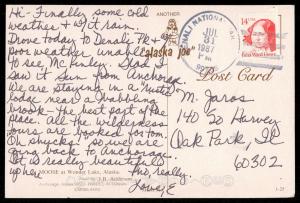 Hi - Finally some cold
weather & wet rain.
Drove today to Denali Pk + w/
poor weather unable
to see McKinley. Dad & I
saw it Sun from Anchorage
We are staying in a rustic
lodge near a babbling
brook - the best part of the
place. All the wilderness
tours are booked for tom.
Oh shucks! so we are
going back to Anchorage.
But is really beautiful
up here
and, really.
Love, E
MOOSE at Wonder Lake, Alaska.
ANOTHER
"alaska joe"
Post Card
DENALI NATIONAL PARK
JUL
31
1987
PM
M. Jaros
140 So Harvey
Oak Park, Il
60302